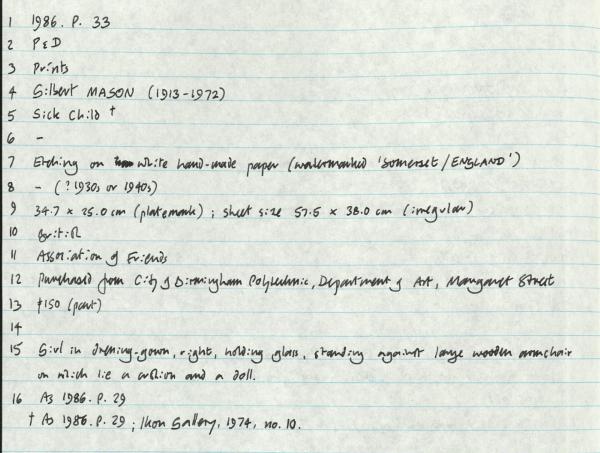 1 1986. P. 33
2 P&D
3 Prints
4 Gilbert MASON (1913-1972)
5 Sick Child †
6 -
7 Etching on white hand-made paper (watermarked 'SOMERSET/ENGLAND')
8 - (? 1930s or 1940s)
9 34.7 x 25.0 cm (platemark) ; sheet size 57.5 x 38.0 cm (irregular)
10 British
11 Association of Friends
12 Purchased from City of Birmingham Polytechnic, Department of Art, Margaret Street
13 150 (part)
14
15 Girl in dressing-gown, right, holding glass, standing against large wooden armchair
on which lie a cushion and a doll.
16 As 1986. P. 29
† As 1986. P. 29 ; Ikon Gallery, 1974, no. 10.